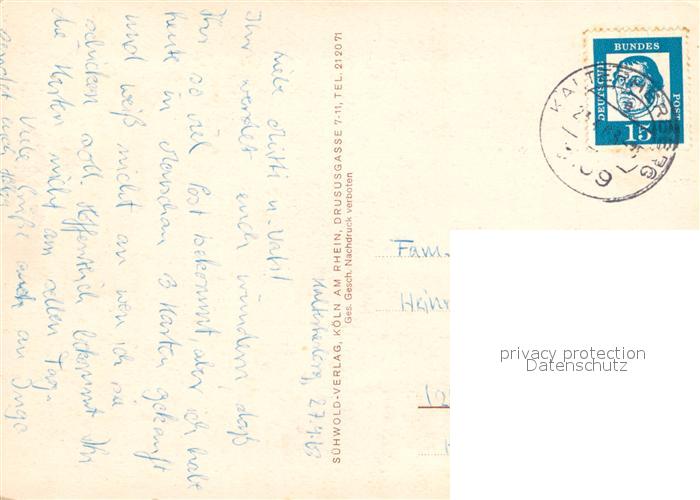 Kalterherberg, 27.4.63
Liebe Mutti u. Vati!
Ihr werdet euch wundern, daß
Ihr so viel Post bekommt, aber ich habe
heute in Monschau 3 Karten gekauft
und weiß nicht an wen ich sie
schicken soll. Hoffentlich bekommt Ihr
die Karten nicht am selben Tag.
Viele Grüße auch an Inge
sendet euch
SÜHWOLD-VERLAG, KÖLN AM RHEIN, DRUSUSGASSE 7-11, TEL. 21 20 71
Ges. Gesch. Nachdruck verboten
DEUTSCHE
BUNDES
POST
15
KALTERHERBERG
5109
Fam.
Hein
privacy protection
Datenschutz